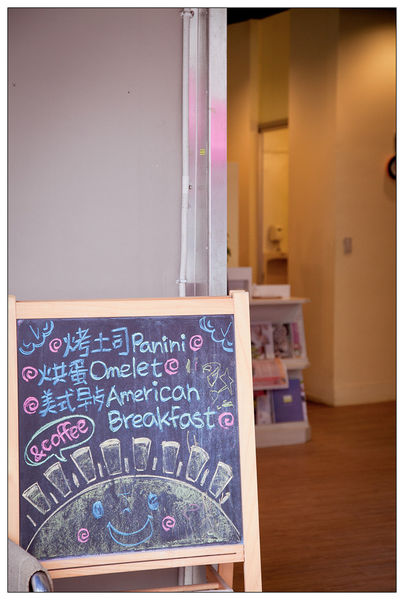 烤土司Panini
烘蛋Omelet
美式早午American
Breakfast
&coffee